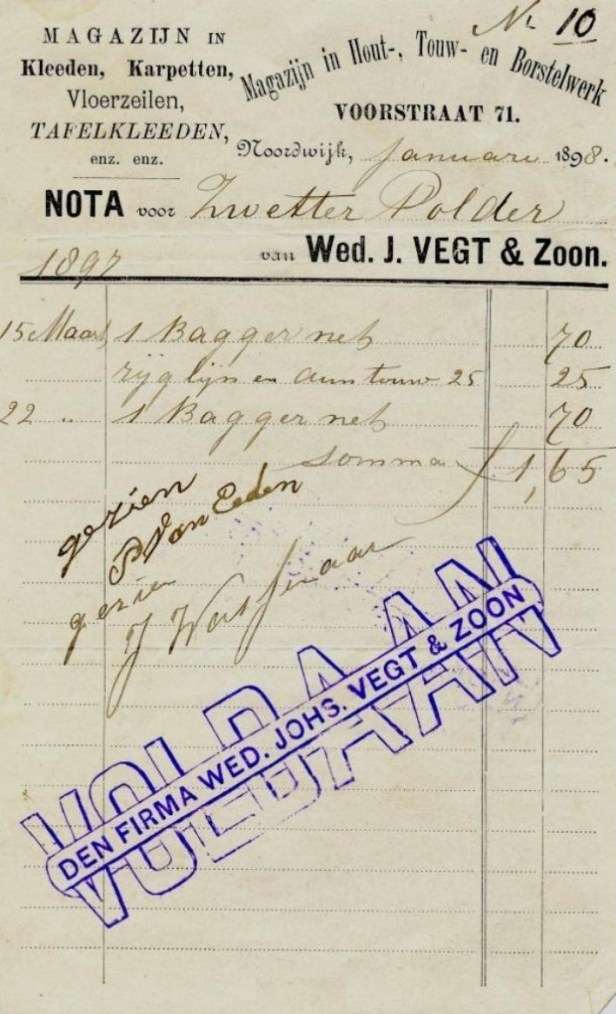 No 10
MAGAZIJN IN
Kleeden, Karpetten,
Vloerzeilen,
TAFELKLEEDEN,
enz. enz.
Magazijn in Hout-, Touw- en Borstelwerk
VOORSTRAAT 71.
Noordwijk, Januari 1898.
NOTA voor Zwetter Polder
van Wed. J. VEGT & Zoon.
1897
15 Maart 1 Baggernet 70
rijglijn en touw 25 25
22 " 1 Baggernet 70
Somma 1,65
gezien
P Van Eeden
gezien
J Wassenaar
VOLDAAN
DEN FIRMA WED. JOHS. VEGT & ZOON